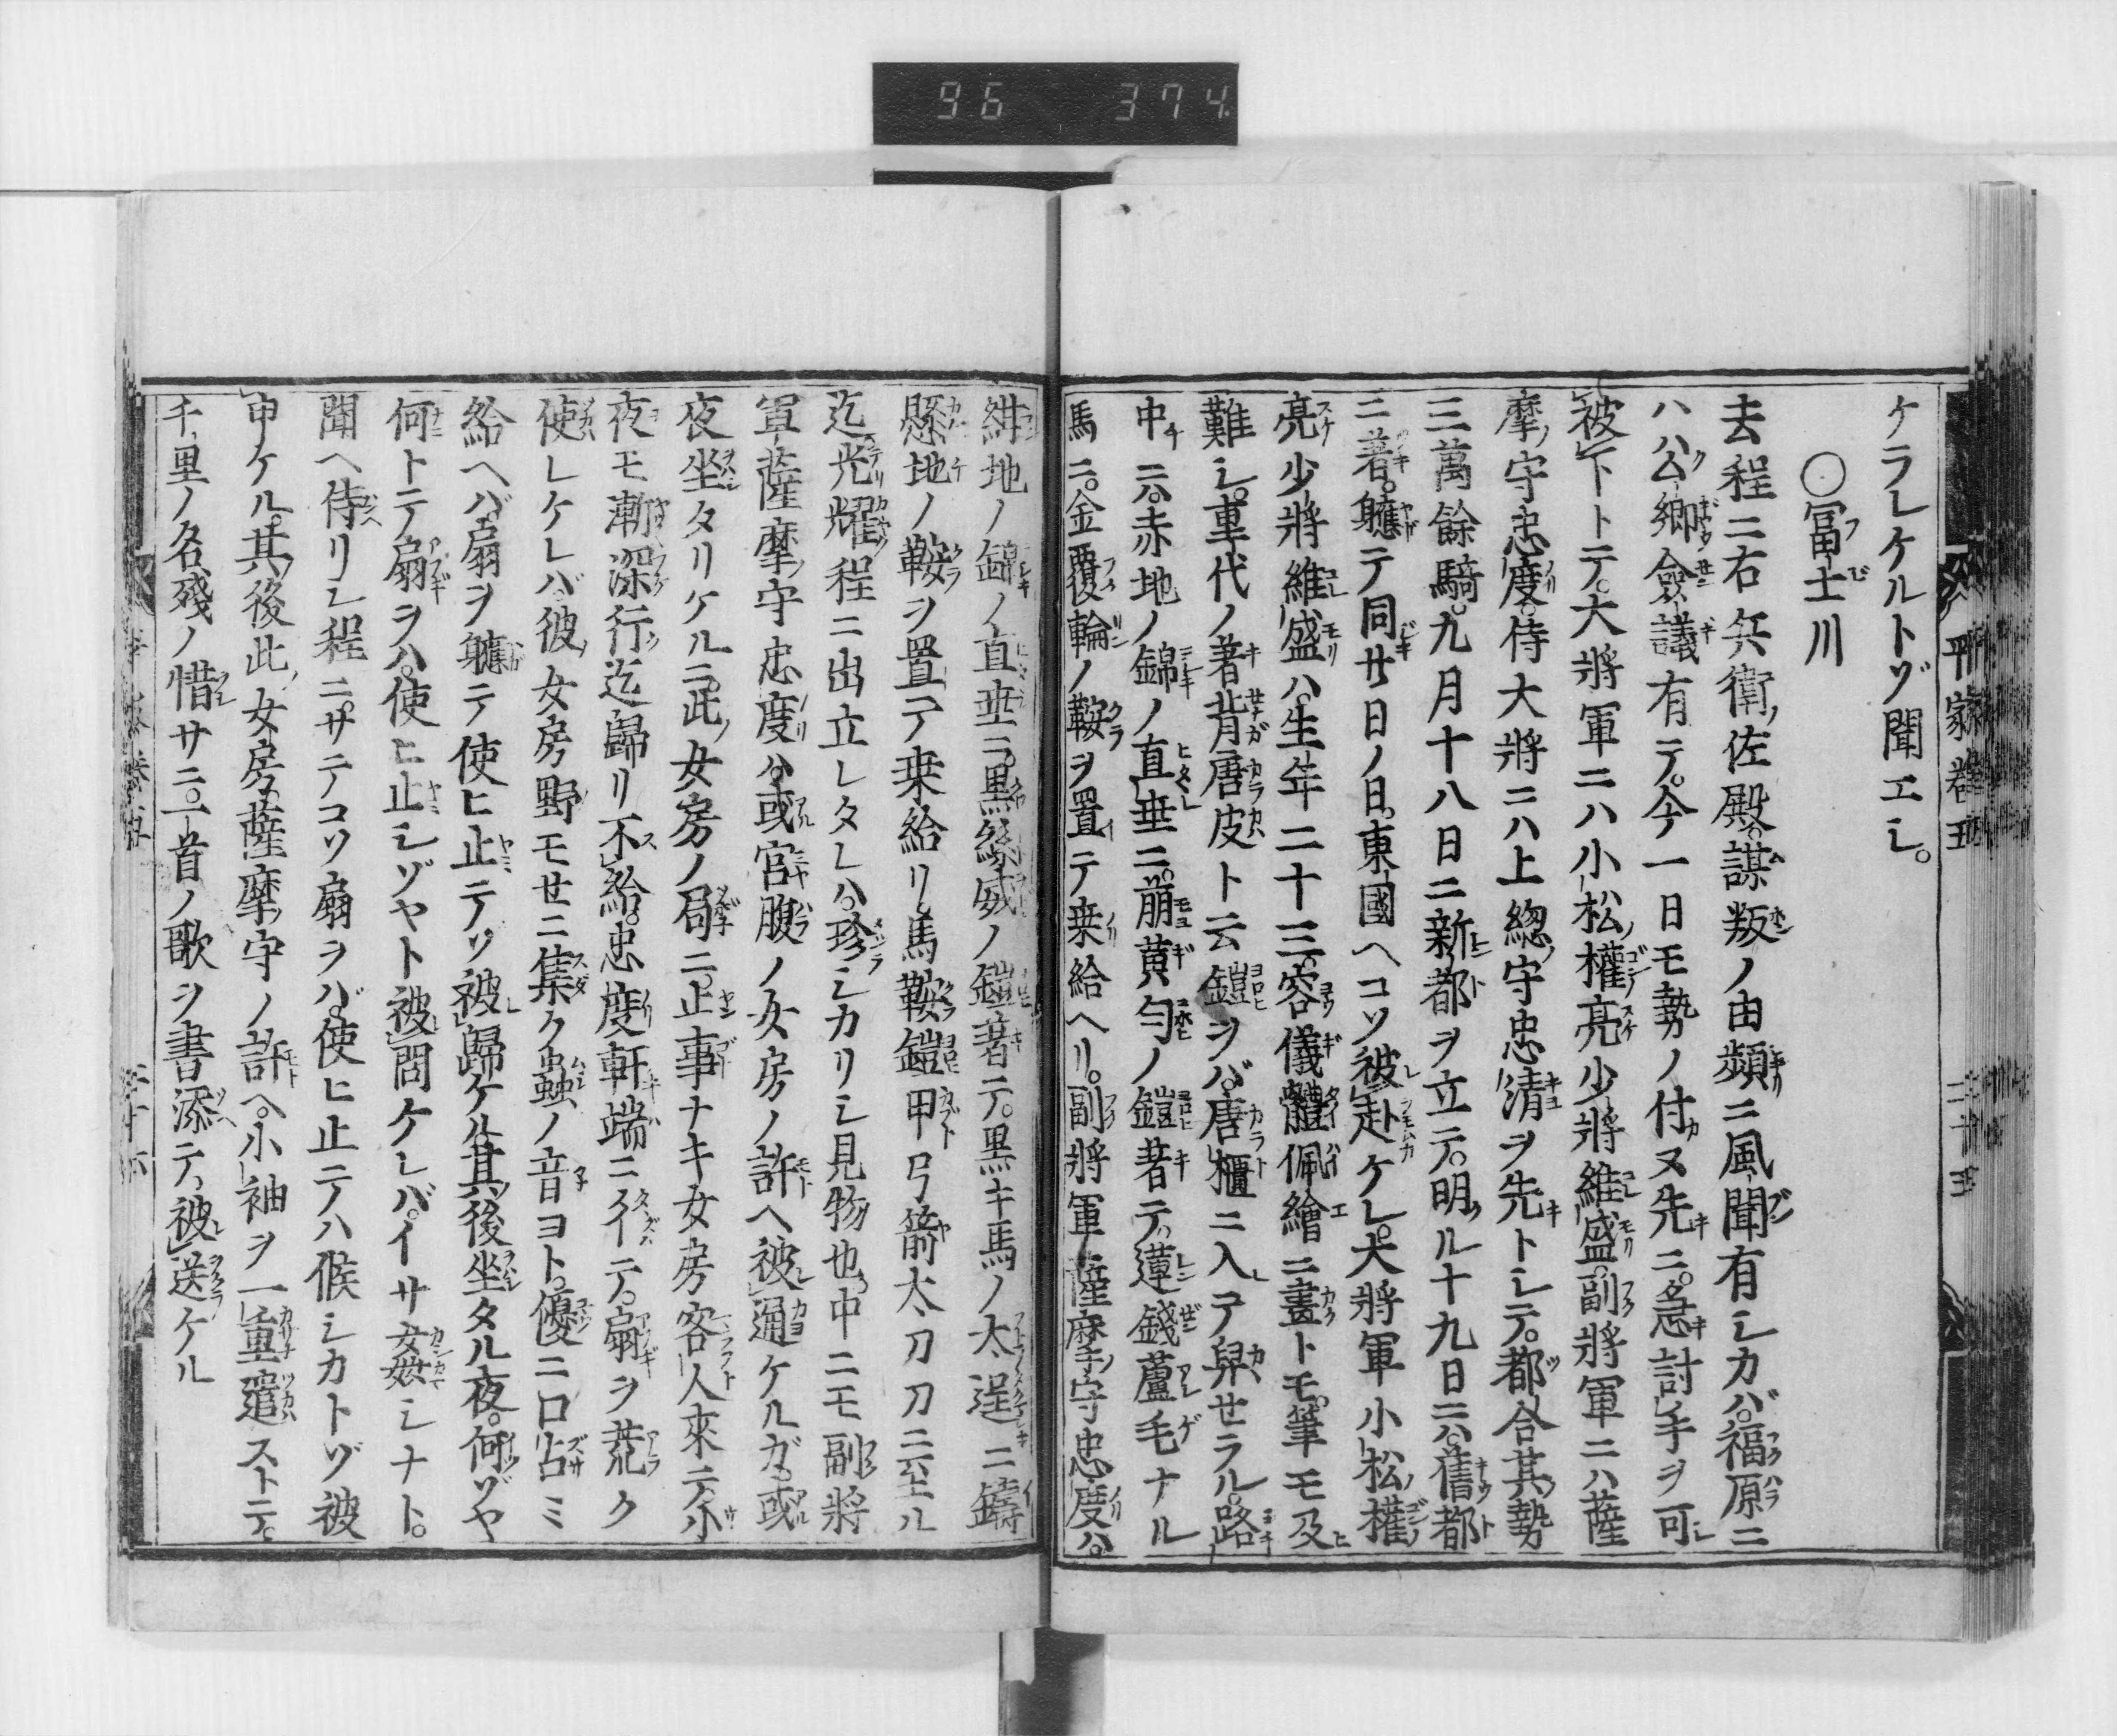 96 374
平家巻五
二十五
ケラレケルトゾ聞エシ。
〇冨士川
去程ニ右兵衛ノ佐殿謀叛ノ由頻ニ風聞有シカバ。福原ニ
ハ公卿僉議有テ。今一日モ勢ノ付ヌ先ニ。急討手ヲ可
被下トテ。大將軍ニハ小松ノ權亮少將維盛。副將軍ニハ薩
摩ノ守忠度。侍大將ニハ上總ノ守忠清ヲ先トシテ。都合其勢
三萬餘騎。九月十八日ニ新都ヲ立テ。明ル十九日ニハ舊都
ニ著。軈テ同廿日ノ日。東國ヘコソ被赴ケレ。大將軍小松ノ權
亮少將維盛ハ。生年二十三。容儀體佩繪ニ畫トモ。筆モ及
難シ。重代ノ著背唐皮ト云鎧ヲバ。唐櫃ニ入テ舁セラル。路
中ニハ。赤地ノ錦ノ直垂ニ。萠黄匀ノ鎧著テ。蓮錢蘆毛ナル
馬ニ。金覆輪ノ鞍ヲ置テ乗給ヘリ。副將軍薩摩ノ守忠度ハ。
紺地ノ錦ノ直垂ニ。黒絲威ノ鎧著テ。黒キ馬ノ太逞ニ鑄
懸地ノ鞍ヲ置テ乗給リ。馬鞍鎧甲弓箭太刀刀ニ至ル
迄。光耀程ニ出立レタレハ。珍シカリシ見物也。中ニモ副將
軍薩摩ノ守忠度ハ。或官腹ノ女房ノ許ヘ被通ケルガ。或
夜坐タリケルニ。此ノ女房ノ局ニ。止事ナキ女房客人來テ。小
夜モ漸深行迄歸リ不給。忠度軒端ニ彳テ。扇ヲ荒ク
使レケレバ。彼ノ女房野モセニ集ク蟲ノ音ヨト。優ニ口占ミ
給ヘバ。扇ヲ軈テ使ヒ止テソ被歸ケル。其後坐タル夜。何ゾヤ
何トテ扇ヲハ。使ヒ止シゾヤト被問ケレバ。イサ姦シナト。
聞ヘ侍リシ程ニ。サテコソ扇ヲバ。使ヒ止テハ候シカトゾ被
申ケル。其後此ノ女房。薩摩ノ守ノ許ヘ。小袖ヲ一重遣ストテ。
千里ノ名殘ノ惜サニ。一首ノ歌ヲ書添テ。被送ケル